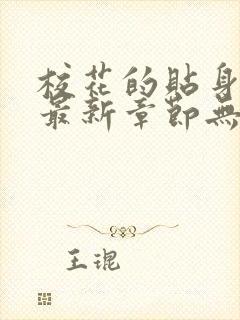 校花的貼身
最新章節無
王琨